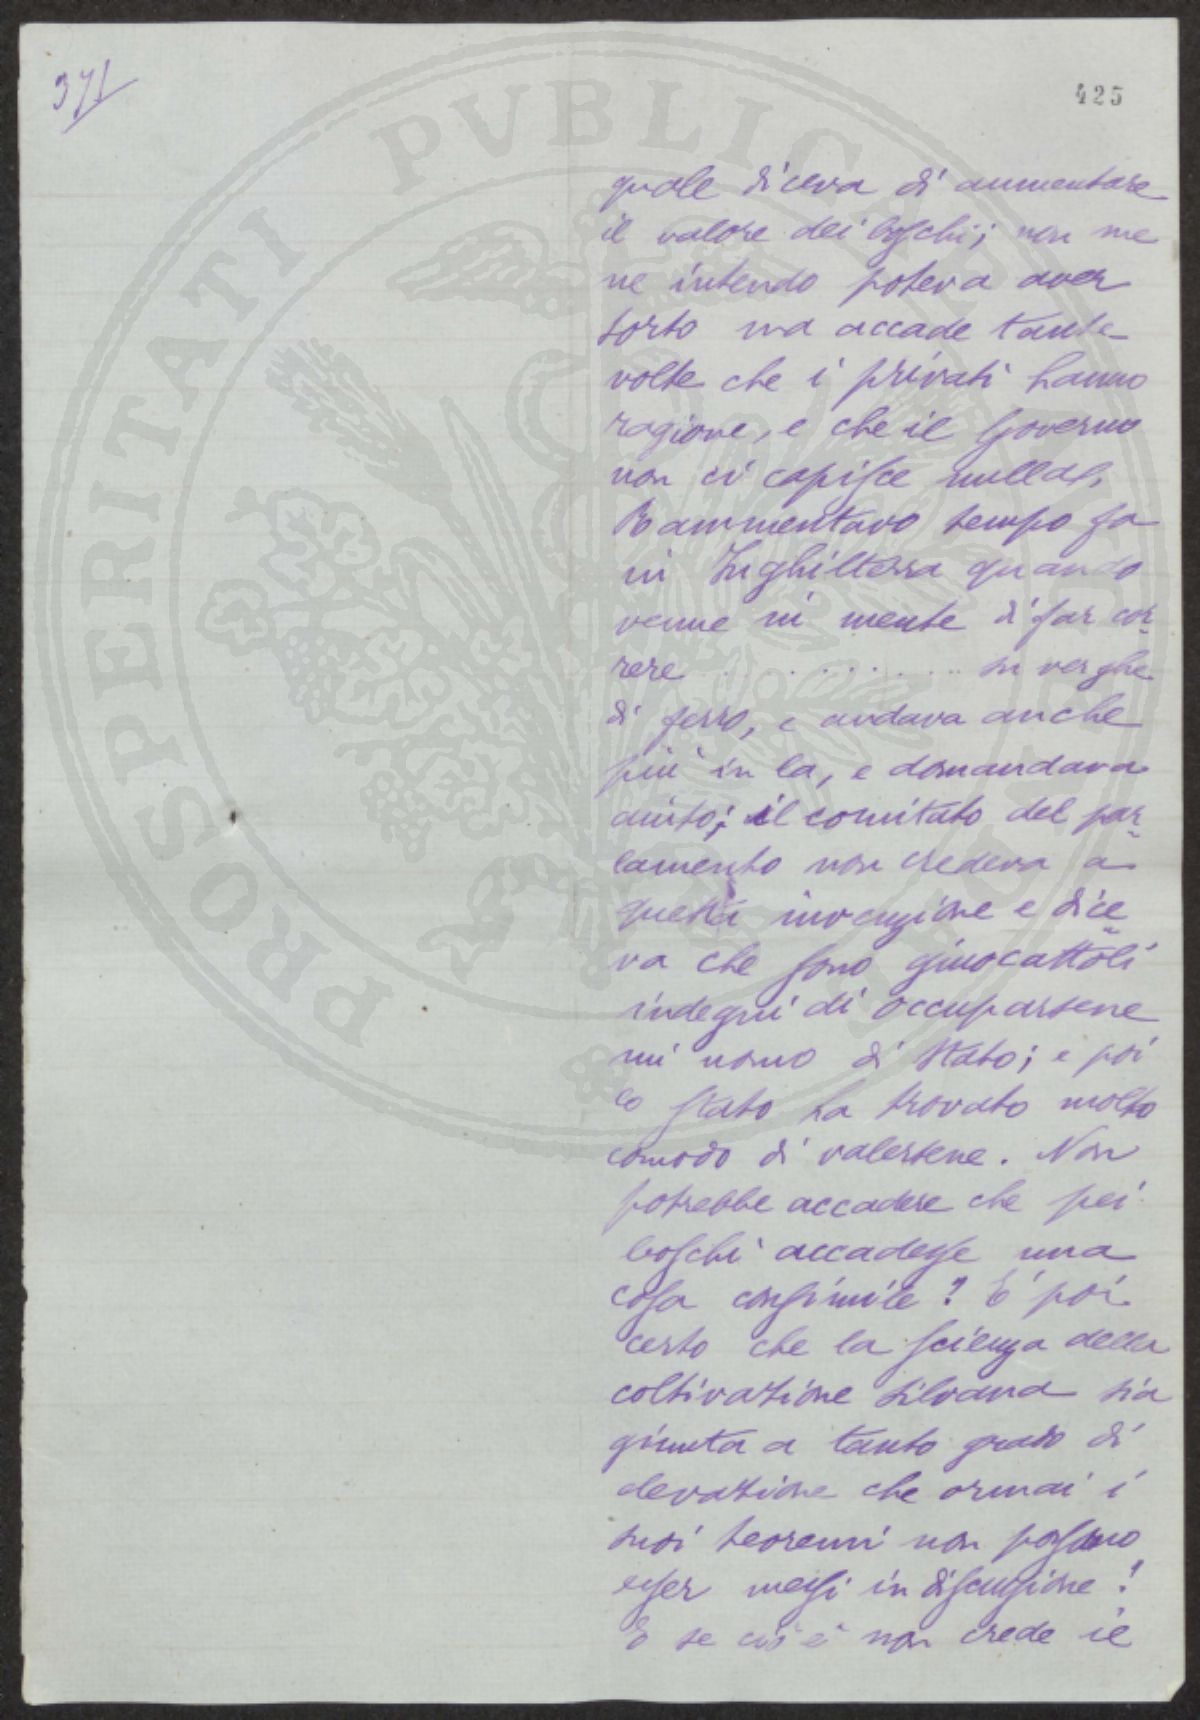 371
425
quale diceva di aumentare
il valore dei boschi; non me
ne intendo poteva aver
torto ma accade tante
volte che i privati hanno
ragione, e che il Governo
non ci capisce nulla.
Rammentavo tempo fa
in Inghilterra quando
venne in mente di far cor
rere . . . . . . . . . su verghe
di ferro, e andava anche
più in la, e domandava
aiuto; il comitato del par
lamento non credeva a
questi invenzione e dice
va che sono giuocattoli
indegni di occuparsene
un uomo di Stato; e poi
lo Stato ha trovato molto
comodo di valersene. Non
potrebbe accadere che pei
boschi accadesse una
cosa consimile? E' poi
certo che la scienza della
coltivazione silvana sia
giunta a tanto grado di
elevazione che ormai i
suoi teoremi non possano
esser messi in discussione!
E se ciò è non crede il
PROSPERITATI PVBLICAE